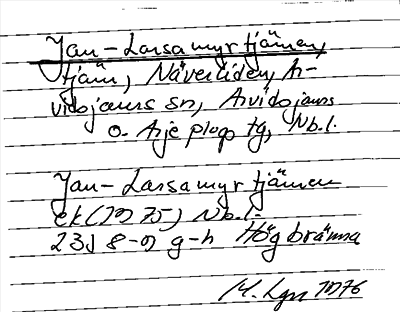 Jan-Larsamyrtjärnen,
tjärn, Näverliden, Ar-
vidsjaurs sn, Arvidsjaurs
o. Arjeplogs tg, Nb.l.
Jan-Larsamyrtjärnen
ek (1975) Nb.l.
23J 8-9 g-h Högbränna
M. Lgn 1976